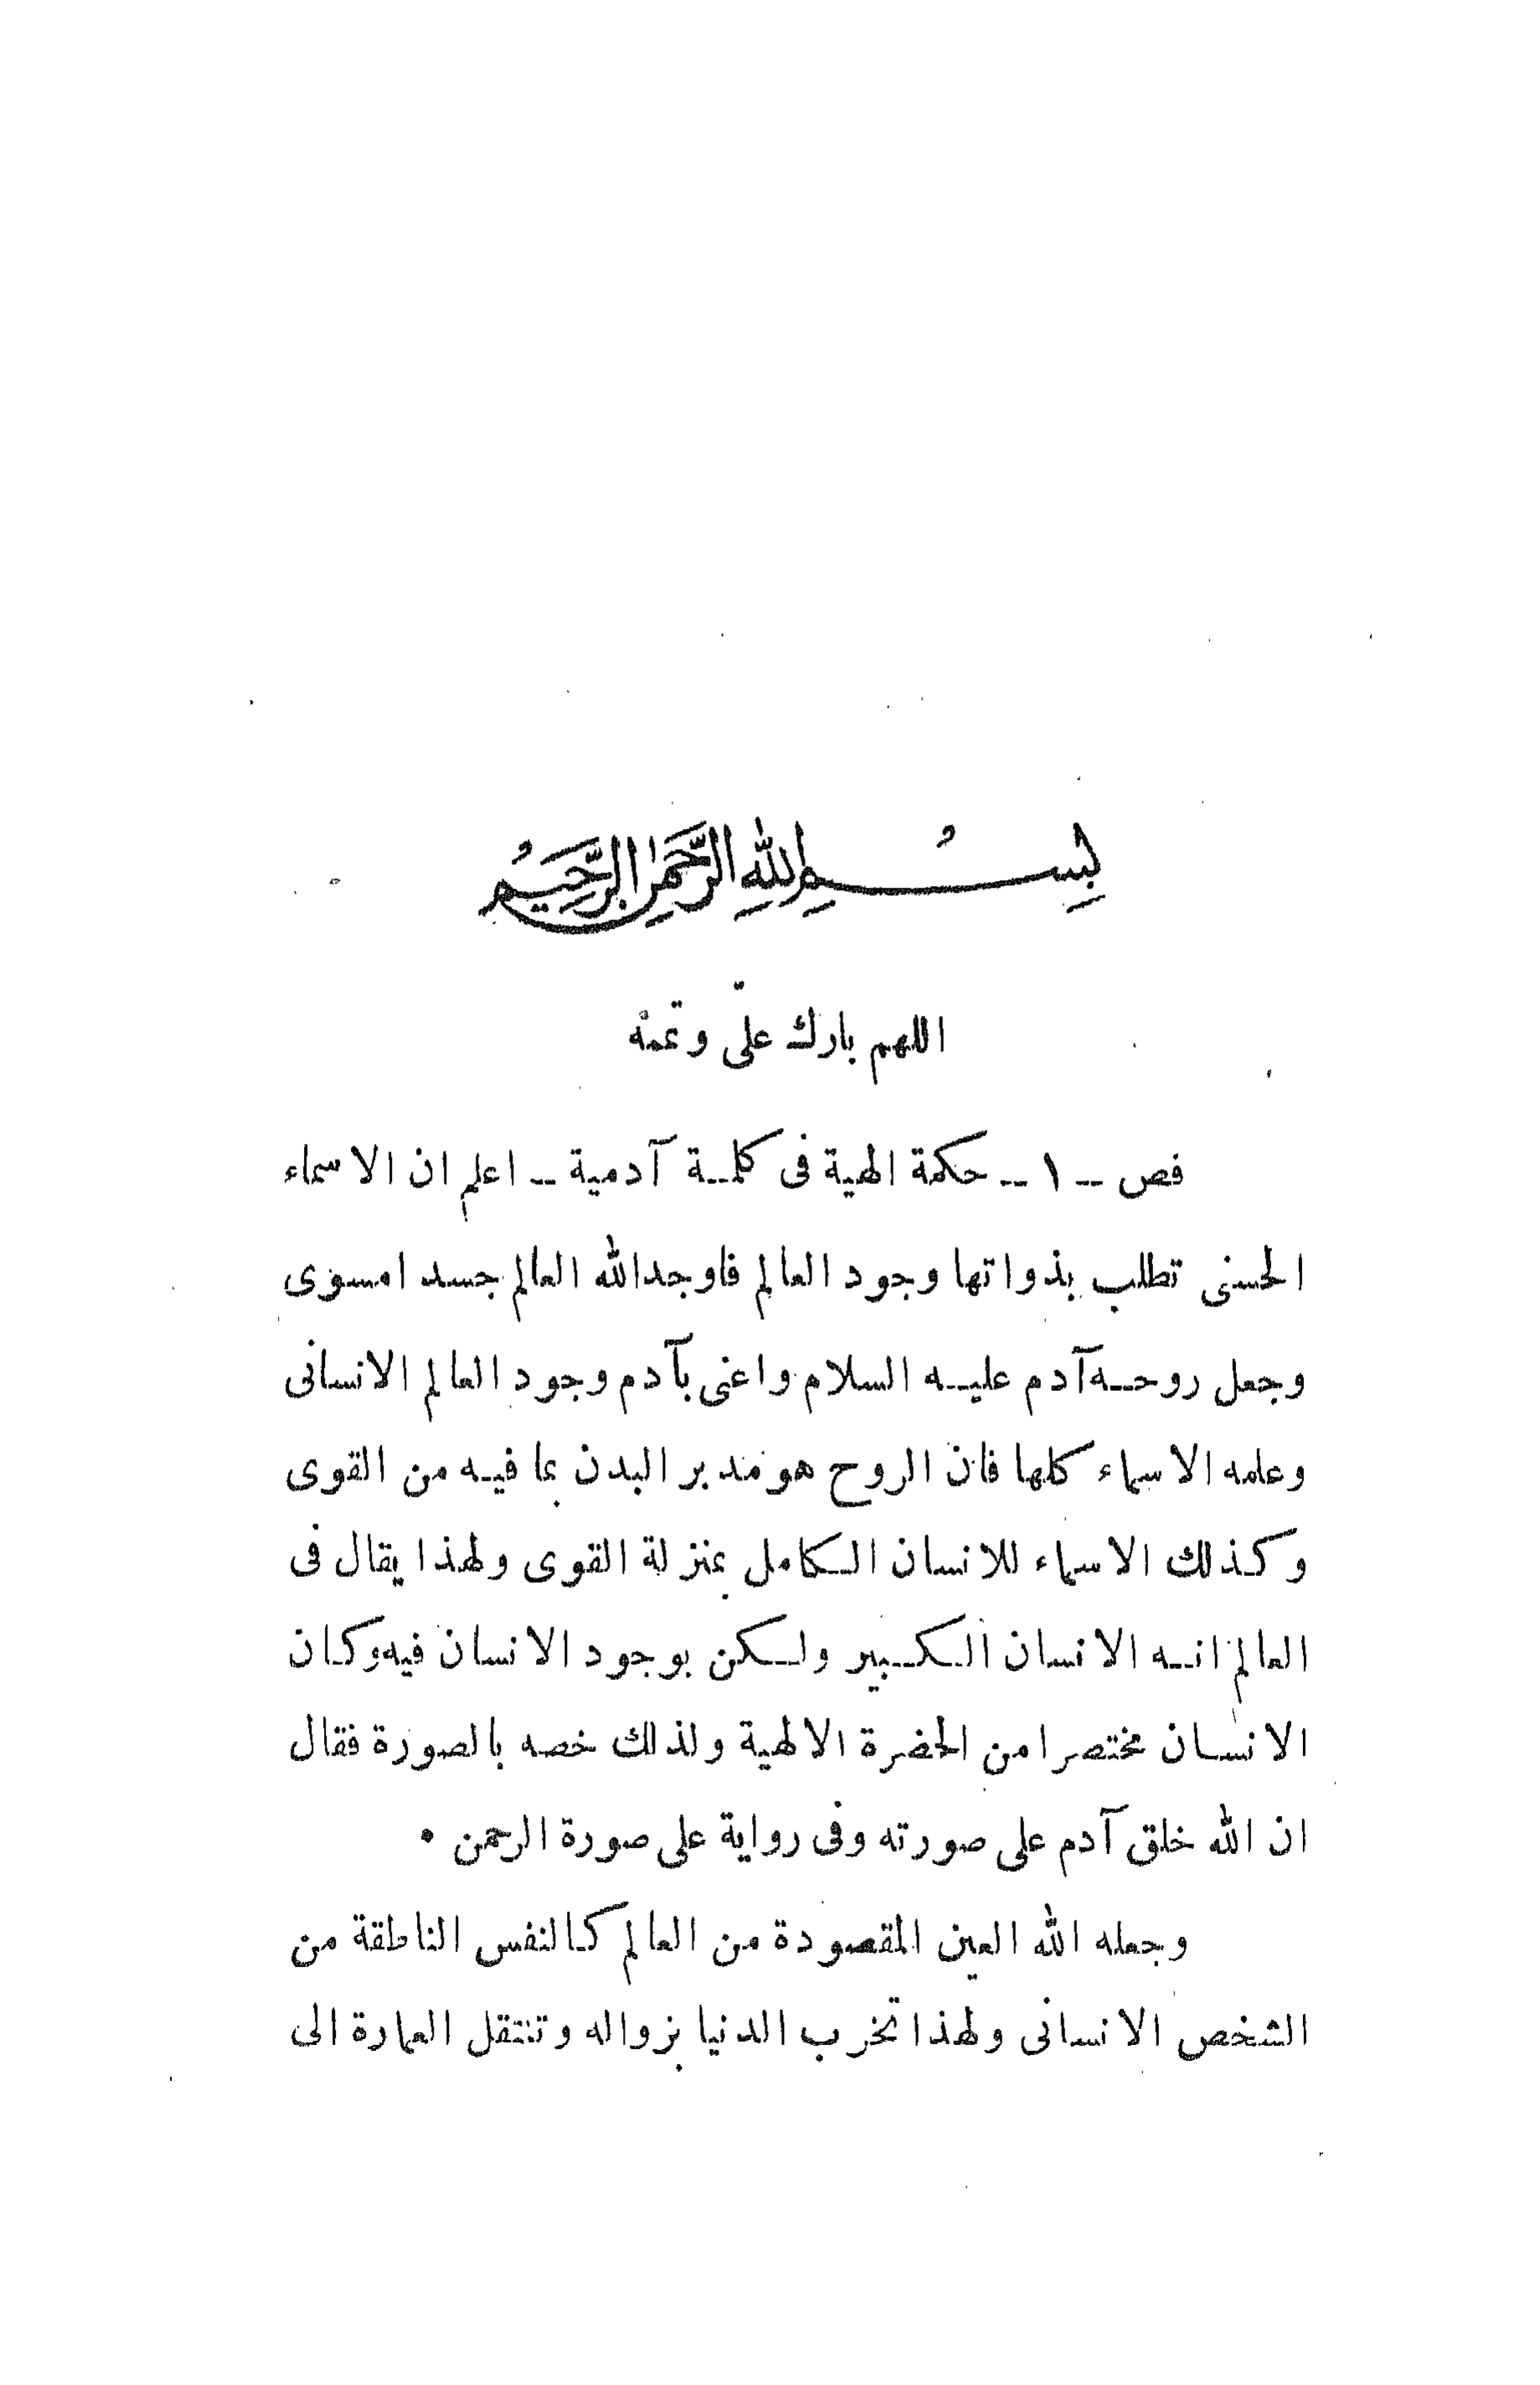 بِسْمِ اللهِ الرَّحْمٰنِ الرَّحِيمِ
اللهم بارك علىّ وتممّه
فص -- ١ -- حكمة الهية فى كلمة آدمية -- اعلم ان الاسماء
الحسنى تطلب بذواتها وجود العالم فاوجد الله العالم جسدا مسوى
وجعل روحه آدم عليه السلام واعنى بآدم وجود العالم الانسانى
وعلمه الاسماء كلها فان الروح هو مدبر البدن بما فيه من القوى
وكذلك الاسماء للانسان الكامل بمنزلة القوى ولهذا يقال فى
العالم انه الانسان الكبير ولكن بوجود الانسان فيه وكان
الانسان مختصرا من الحضرة الالهية ولذلك خصه بالصورة فقال
ان الله خلق آدم على صورته وفى رواية على صورة الرحمن •
وجعله الله العين المقصودة من العالم كالنفس الناطقة من
الشخص الانسانى ولهذا تخرب الدنيا بزواله وتنتقل العمارة الى